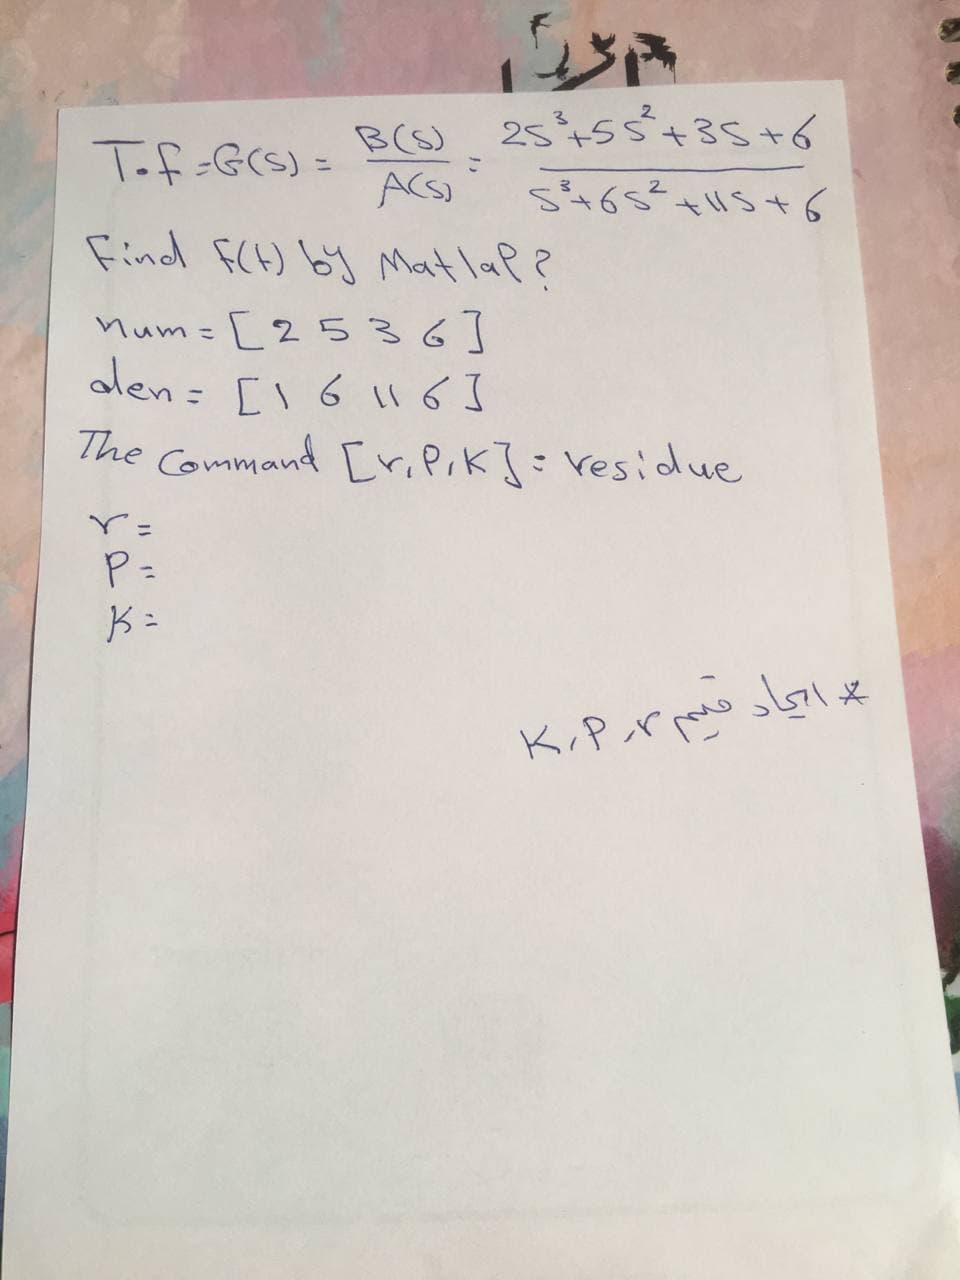 T.f = G(s) = B(s)/A(s) = 2s³+5s²+3s+6 / s³+6s²+11s+6
Find f(t) by Matlap?
num = [2 5 3 6]
den = [1 6 11 6]
The Command [r,P,K] = residue
r =
P =
K =
* ايجاد قيم K,P,r